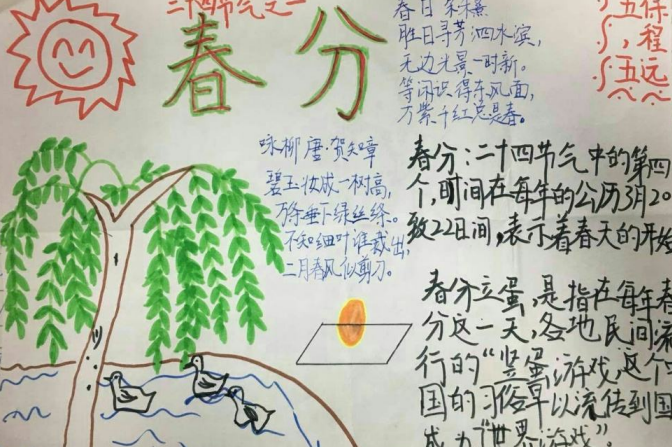 二十四节气之一
春分
春日 朱熹
胜日寻芳泗水滨，
无边光景一时新。
等闲识得东风面，
万紫千红总是春。
五保
，程
五远
咏柳 唐·贺知章
碧玉妆成一树高，
万条垂下绿丝绦。
不知细叶谁裁出，
二月春风似剪刀。
春分：二十四节气中的第四
个，时间在每年的公历3月20
致22日间，表示着春天的开始
春分立蛋，是指在每年春
分这一天，各地民间流
行的“竖蛋游戏，这个
国的习俗早以流传到国
成为“世界游戏”